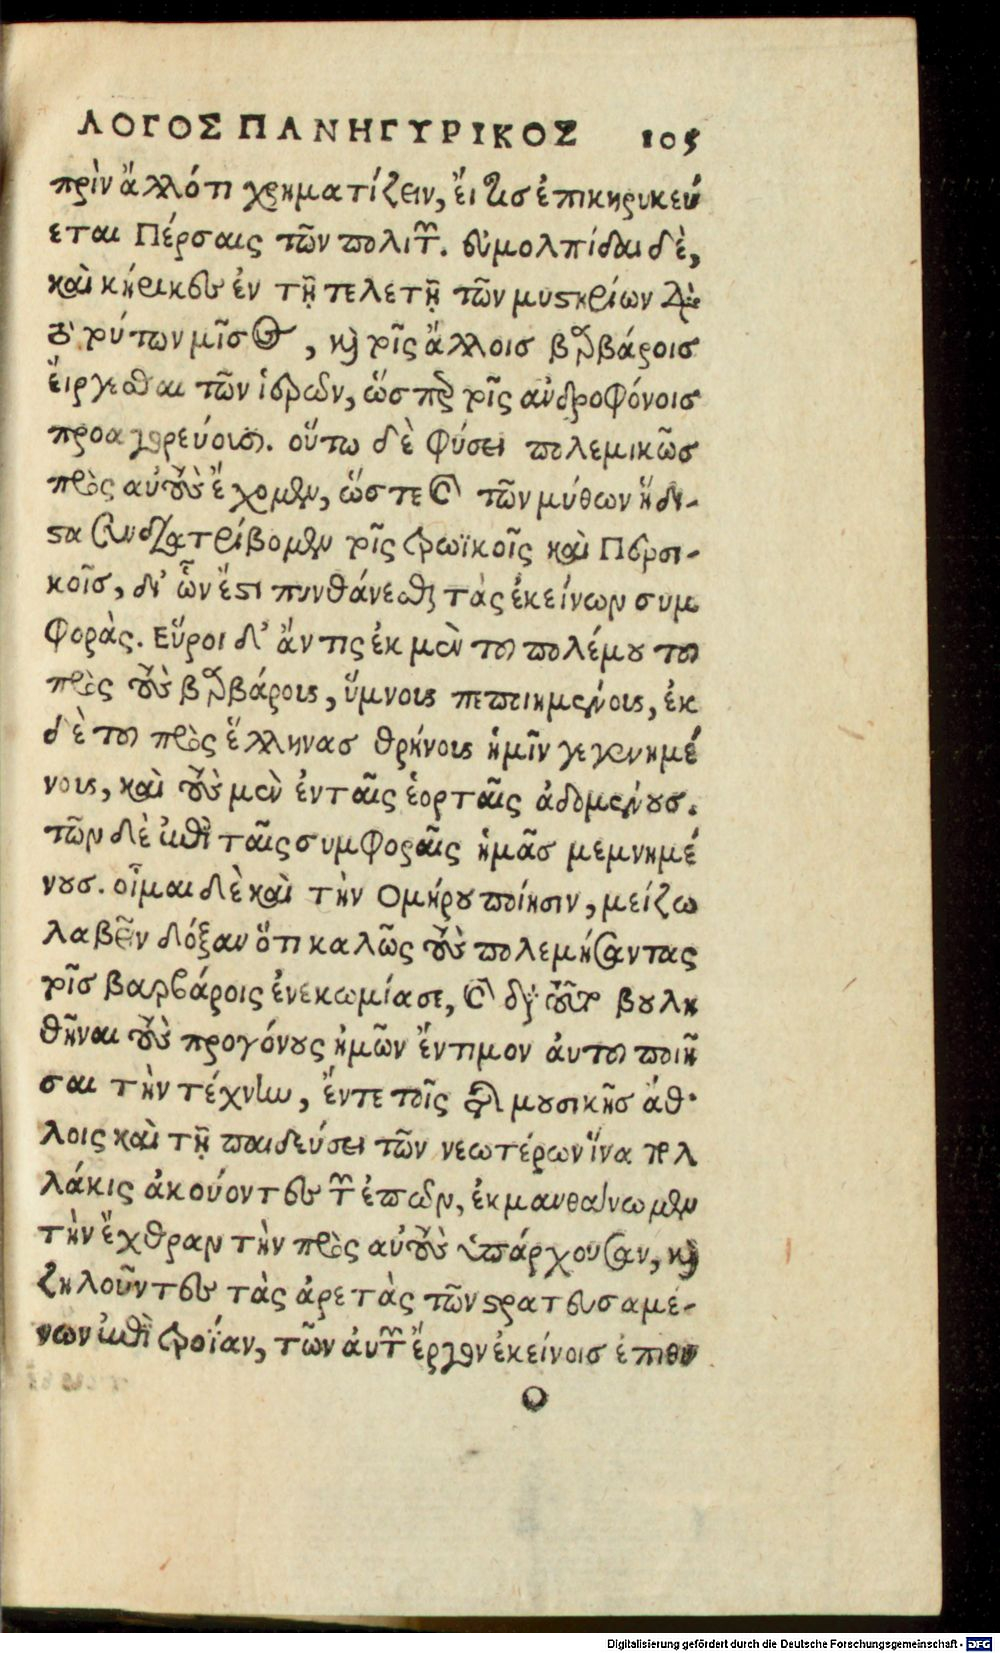 ΛΟΓΟΣ ΠΑΝΗΓΥΡΙΚΟΣ 105
πρὶν ἄλλό τι χρηματίζειν, ἔι τις ἐπικηρυκεύ
εται Πέρσαις τῶν πολιτῶν. ἐυμολπίδαι δὲ,
καὶ κήρικες ἐν τῇ τελετῇ τῶν μυστηρίων διὰ
τὸ τούτων μῖσος, καὶ τοῖς ἄλλοις βαρβάροις
ἔιργεσθαι τῶν ἱερῶν, ὥσπερ τοῖς ἀνδροφόνοις
προαγορεύουσιν. οὕτω δὲ φύσει πολεμικῶς
πρὸς αὐτοὺς ἔχομεν, ὥστε καὶ τῶν μύθων ἥδι-
στα συνδιατρίβομεν τοῖς τρωϊκοῖς καὶ Περσι-
κοῖς, δι' ὧν ἔστι πυνθάνεσθαι τὰς ἐκείνων συμ
φορὰς. Εὕροι δ' ἄν τις ἐκ μὲν τοῦ πολέμου τοῦ
πρὸς τοὺς βαρβάρους, ὕμνους πεποιημένους, ἐκ
δὲ τοῦ πρὸς ἕλληνας θρήνους ἡμῖν γεγενημέ
νους, καὶ τοὺς μὲν ἐν ταῖς ἑορταῖς ἀδομένους.
τῶν δὲ ἐπὶ ταῖς συμφοραῖς ἡμᾶς μεμνημέ
νους. οἶμαι δὲ καὶ τὴν Ομήρου ποίησιν, μείζω
λαβεῖν δόξαν ὅτι καλῶς τοὺς πολεμήσαντας
τοῖς βαρβάροις ἐνεκωμίασε, καὶ διὰ τοῦτο βουλη
θῆναι τοὺς προγόνους ἡμῶν ἔντιμον ἀυτοῦ ποιῆ
σαι τὴν τέχνην, ἔν τε τοῖς τῆς μουσικῆς ἄθ-
λοις καὶ τῇ παιδεύσει τῶν νεωτέρων ἵνα πολ
λάκις ἀκούοντες τῶν ἐπῶν, ἐκμανθάνωμεν
τὴν ἔχθραν τὴν πρὸς αὐτοὺς ὑπάρχουσαν, καὶ
ζηλοῦντες τὰς ἀρετὰς τῶν στρατευσαμέ-
νων ἐπὶ τροίαν, τῶν ἀυτῶν ἔργων ἐκείνοις ἐπιθυ
O
Digitalisierung gefördert durch die Deutsche Forschungsgemeinschaft - DFG